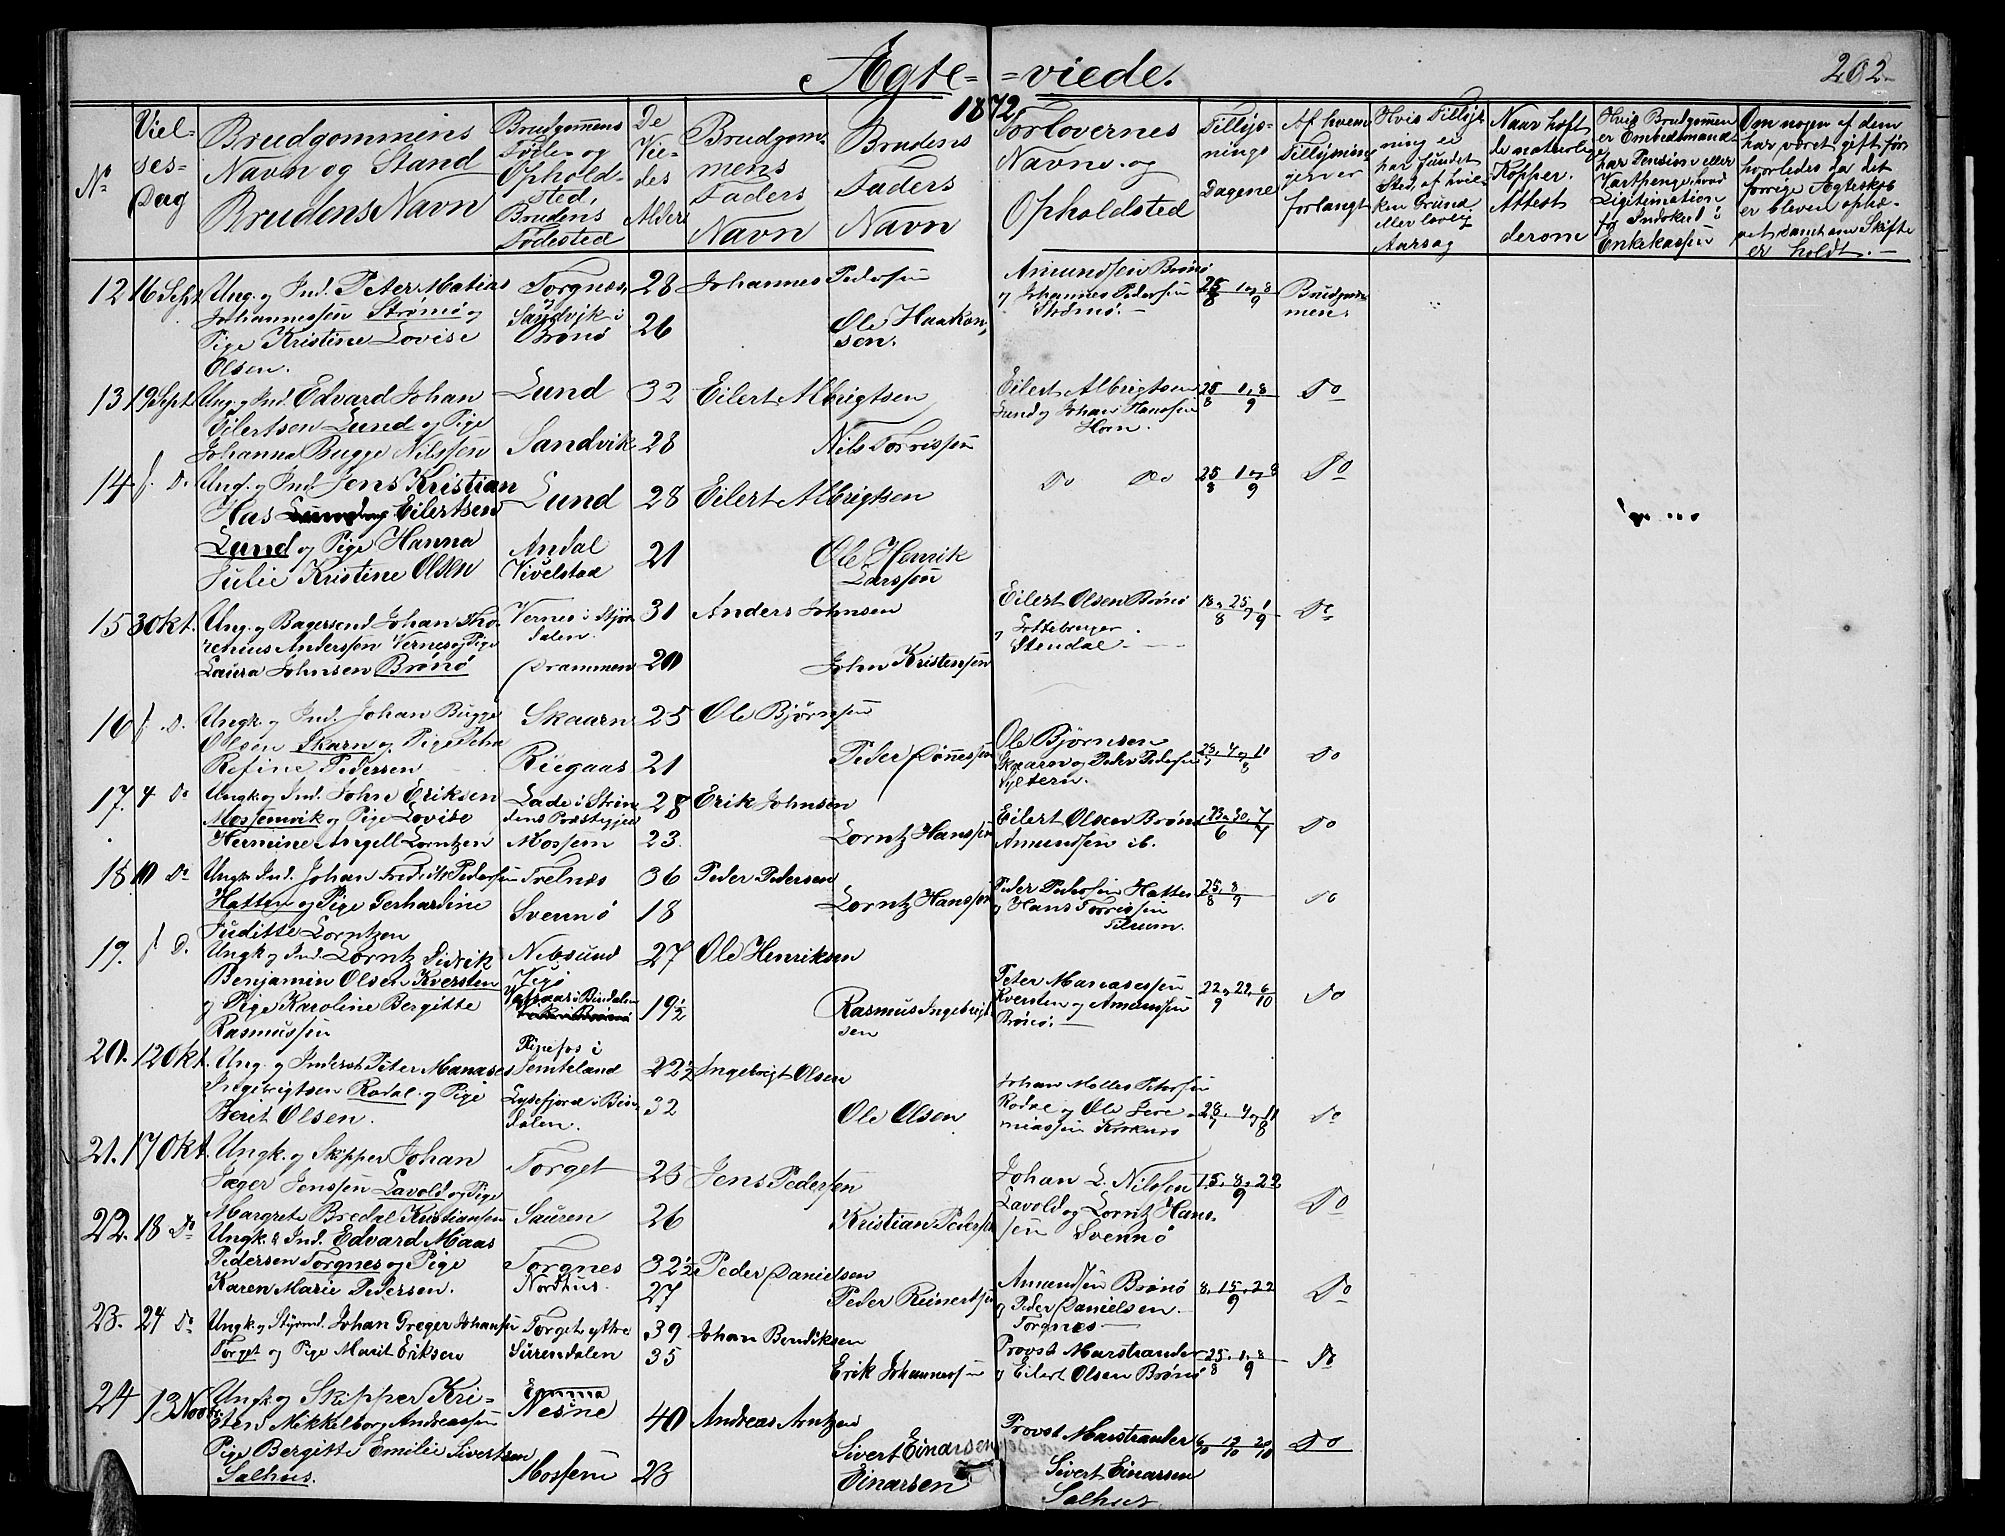 Ægte-=viede.
202
1872.
No
Viel-
ses-
Dag
Brudgommens
Navn og Stand
Brudens Navn
Brudgommens
Føde- og
Ophold-
sted,
Brudens
Fødested
De
Vie-
des
Alder
Brudgom-
mens
Faders
Navn
Brudens
Faders
Navn
Forlovernes
Navne og
Opholdsted
Tillys-
nings
Dagene
Af hvem
Tillysning
en er
forlangt
Hvis Tillys-
ning ei
har fundet
Sted, af hvil-
ken Grund
eller lovlig
Aarsag
Naar haft
de naturlige
Kopper.
Attest
derom
Hvis Brudgommen
er Embedsmand
har Pension eller
Vartpenge, hvad
Legitimation
for Indskud i
Enkekassen
Om nogen af dem
har været gift før
hvorledes da det
forrige Ægteskab
er bleven ophæ-
vet samt om Skifte
er holdt.
12 16 Sept Ung. og Ind. Peter Matias Torgnæs 28 Johannes Pedersen Amundsen Brønø 25/8 1 og 8/9 Brudgom-
Johannessen Strømø og Sandvik i 26 Ole Haakon- og Johannes Pedersen men
Pige Kristine Lovise Brønø sen. Strømø.
Olsen.
13 19 Sept Ung. og Ind. Edvard Johan Lund 32 Eilert Albrigtsen Eilert Albrigtsen 25/8 1. 8/9 Do
Eilertsen Lund og Pige Lund og Johan Hanssen
Johanna Bugge Nilssen Sandvik 28 Nils Torrissen Horn.
14 f. D. Ung. og Ind. Jens Kristian Lund 28 Eilert Albrigtsen Do Do 25/8 1 og 8/9 Do
Has Eilertsen
Lund og Pige Hanna Andal 21 Ole Henrik
Julie Kristine Olsen Vivelstad Larssen
15 3 Okt. Ung. og Bagersvend Johan Tho- Vernes i Stjør- 31 Anders Johnsen Eilert Olsen Brønø 18. 25/8 og 1/9 Do
Anderssen Vernes og Pige dalen. og
Laura Johnsen Brønø Drammen 20 John Kristensen Stendal
16 f. D. Ungk. og Ind. Johan Bugge Skaarn 25 Ole Bjørnsen Ole Bjørnsen
Olsen Skarn og Pige Petra Riegaas 21 Peder Dønnessen Skaarn og Peder Pedersen 4 og 11/8 Do
Refine Pedersen Syltern.
17. 4 Do Ungk. og Ind. John Eriksen Lade i Strin- 28 Erik Johnsen Eilert Olsen Brønø 23. 30/6 7/7 Do
Mossemvik og Pige Lovise dens Præstegjeld
Hermine Angell Lorntzen Mossem 23. Lorntz Hanssen Amundsen ib.
18 10 Do Ungk. Ind. Johan Fredrik Pedersen Trelnæs 36 Peder Pedersen Peder Pedersen Hatten 25/8 8/9 Do
Hatten og Pige Gerhardine Svennø 18 Lorntz Hanssen og Hans Torrissen
Juditte Lorntzen Tilrum.
19. f. D. Ungk. og Ind. Lorntz Didrik Nebsund 27 Ole Henriksen
Benjamin Olsen Kversten Vigø Peter Manassessen 22/9 29. 6/10 Do
og Pige Karoline Bergitte i Bindalen 19½ Rasmus Ingebrigt- Kversten og Amundsen
Rasmussen sen Brønø.
20. 12 Okt. Ung. og Inderst Peter Manases i 22½ Ingebrigt Olsen Johan Pedersen
Ingebrigtsen Rødal og Pige Lysefjord i Bin- 32 Ole Olsen Rødal og Ole Jere- 28/7 4 og 11/8 Do
Berit Olsen. dalen. miassen
21. 17 Okt. Ungk. og Skipper Johan Torget 25 Jens Pedersen Johan L. Nilssen 15. 8. 22/9 Do
Jæger Jenssen Lavold og Pige Lavold og Lorntz Hans-
Margrete Bredal Kristiansen Sauren 26 Kristian Pedersen sen Svennø
22. 18 Do Ungk. & Ind. Edvard Maas
Pedersen Torgnes og Pige Torgnes 32½ Peder Danielsen Amundsen Brønø 8. 15. 22/9 Do
Karen Marie Pedersen. Nordhus 27 Peder Reinertsen og Peder Danielsen
Torgnes
23. 24 Do Ungk. og Styrmd. Johan Greger Johansen Torget, yttre 39 Johan Bendiksen Provst Marstrander 25/8. 1. 8/9 Do
Torget og Pige Marit Eriksen Surendalen 35 Erik Johannessen og Eilert Olsen Brønø
24 13 Novbr. Ungk. og Skipper Kri- Nesne 40 Andreas Arntzen Provst Marstrander 6/10 13/10 20/10 Do
sten Mikkelborg Andreassen
Pige Bergitte Emilie Sivertsen Mossem 23 Sivert Einarsen Sivert Einarsen
Salhus. Einarsen Salhus